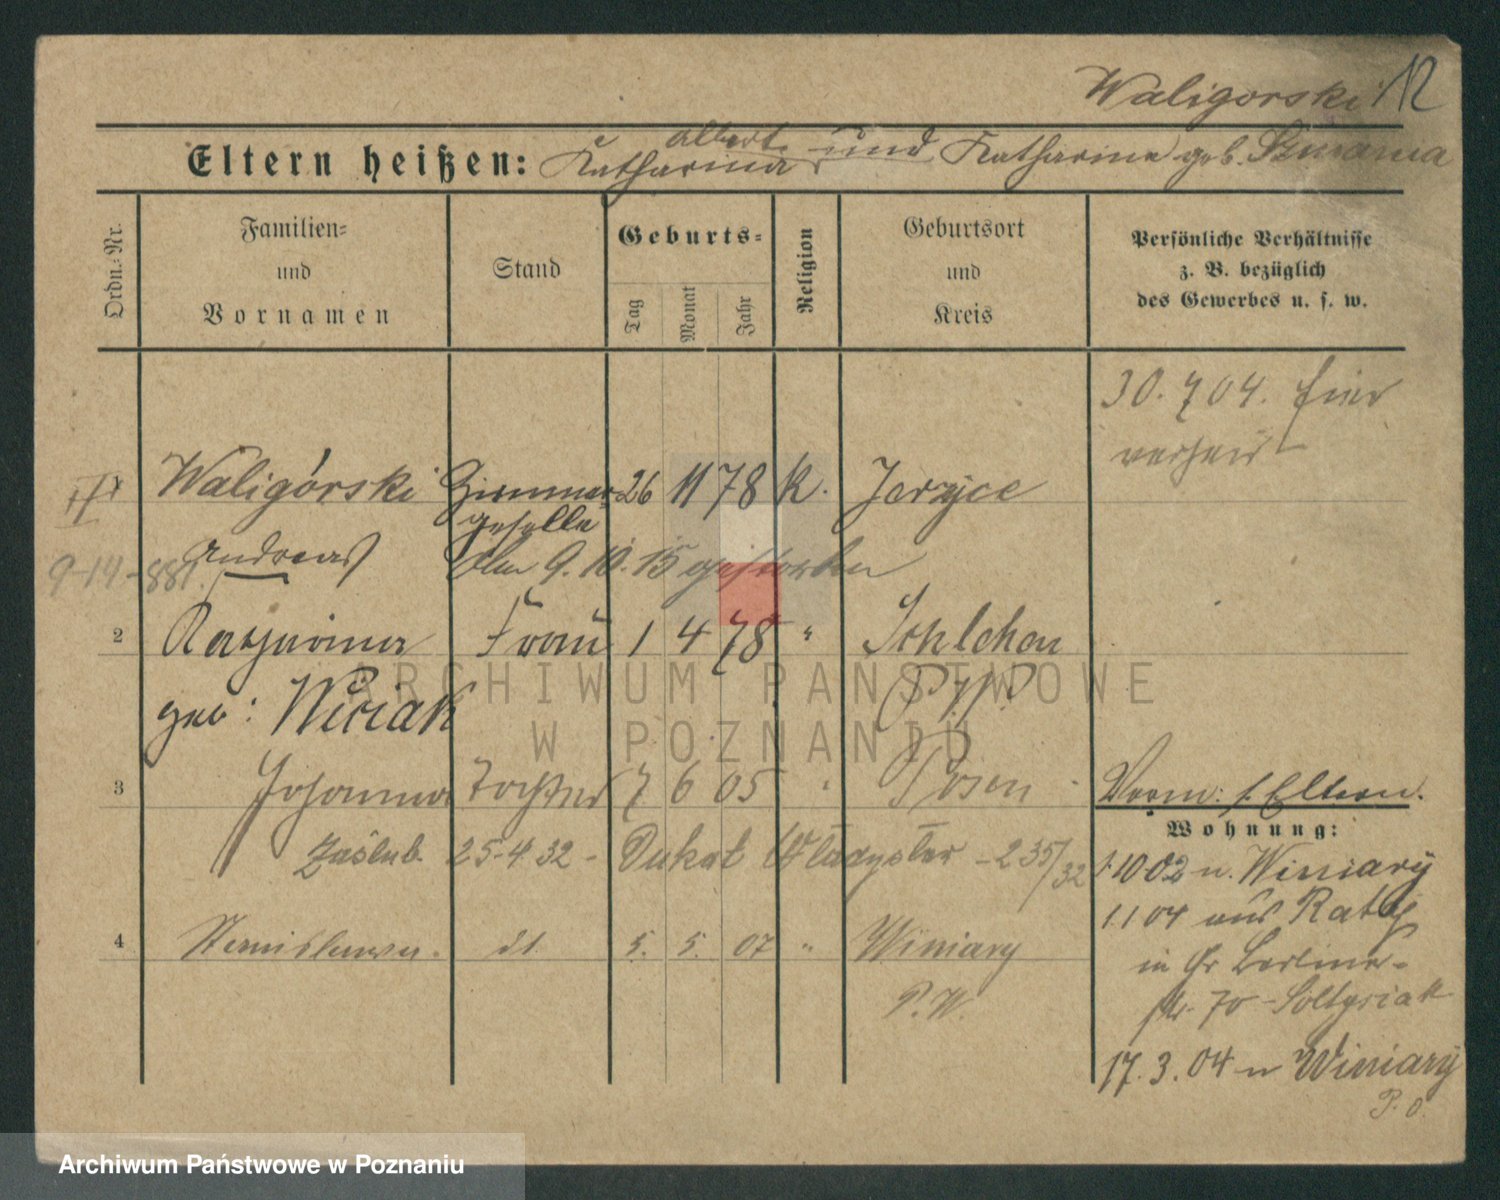 Waligorski 12
Eltern heißen: Katharina Albert und Katharine geb.
Ordn.-Nr.
Familien-
und
Vornamen
Stand
Geburts-
Tag
Monat
Jahr
Religion
Geburtsort
und
Kreis
Persönliche Verhältnisse
z. B. bezüglich
des Gewerbes u. s. w.
30. 7 04. hier
verheir
1 Waligórski Zimmer- 26 11 78 K. Jerzyce
geselle
Andreas
9-14-881. Am 9. 10. 15 gestorben
2 Katharina Frau 1 4 78 " Schlehen
geb: Wisiak P.
3 Johanna Tochter 7 6 05 " Posen
Vorm: s. Eltern.
Zaślub. 25-4-32 - Dukat Władysław - 235/32
4 Stanislawa. dt. 5. 5. 07 " Winiary
P. W.
Wohnung:
1.10 02 n. Winiary
1.1 04 aus
in Gr Berliner-
str. 70 - Soltysiak
17. 3. 04 n Winiary
P. O.
ARCHIWUM PAŃSTWOWE
W POZNANIU
Archiwum Państwowe w Poznaniu